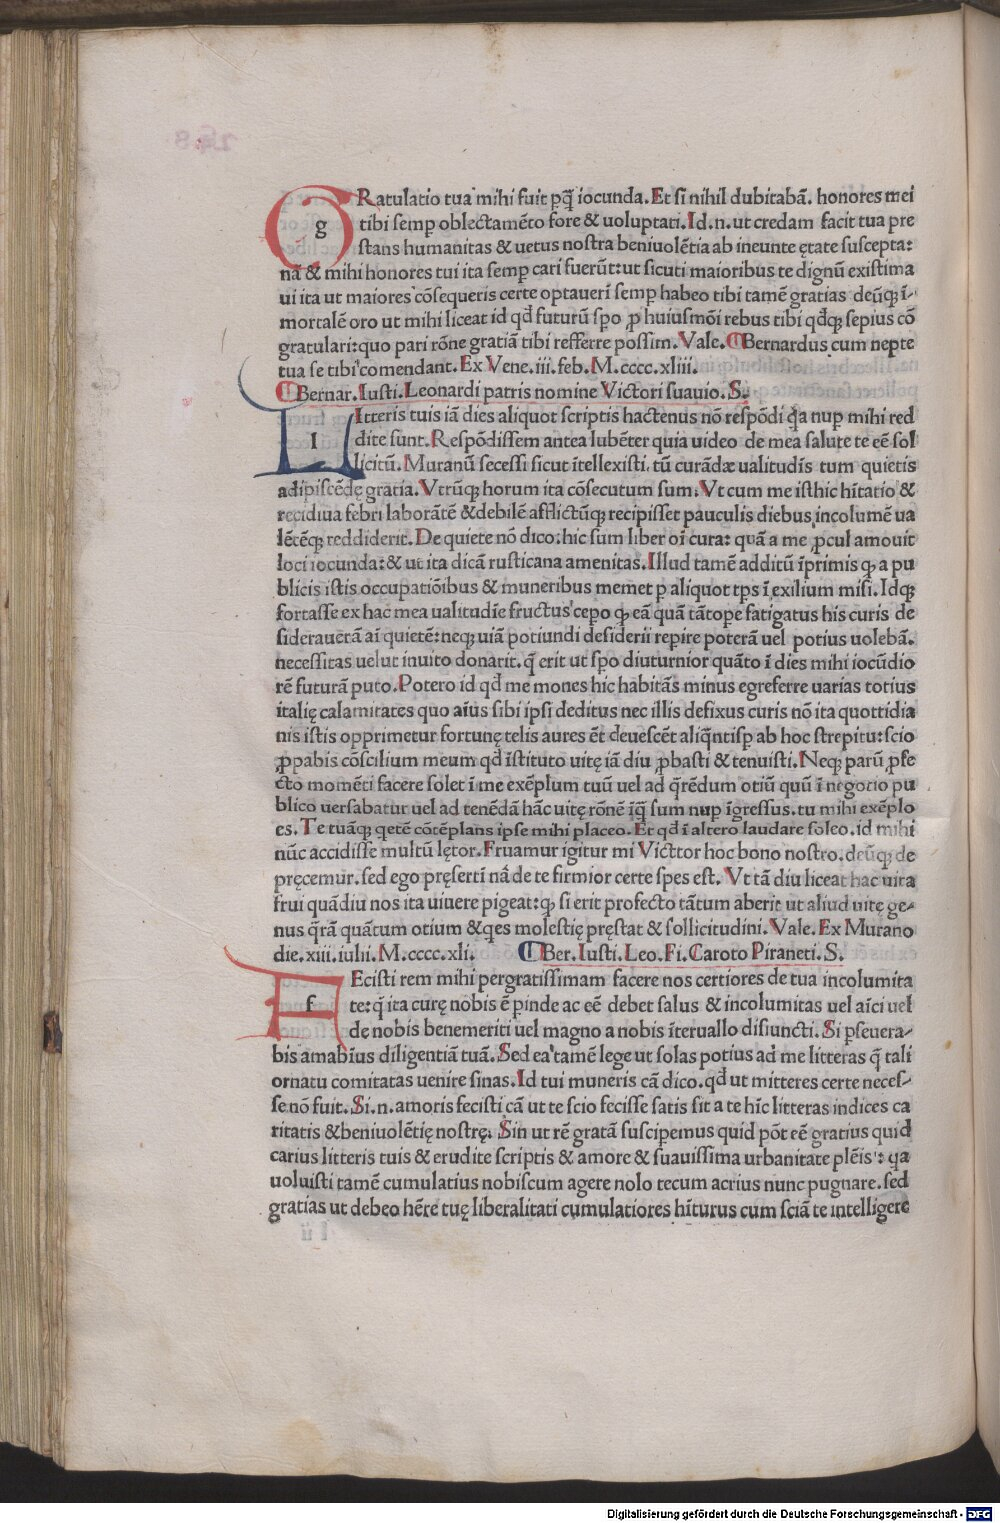 GRatulatio tua mihi fuit pq̃ iocunda. Et si nihil dubitabã. honores mei
tibi semp oblectamẽto fore & uoluptati. Id. n. ut credam facit tua pre
stans humanitas & uetus nostra beniuolẽtia ab ineunte ętate suscepta:
nã & mihi honores tui ita semp cari fuerũt: ut sicuti maioribus te dignũ existima
ui ita ut maiores cõsequeris certe optauerĩ semp habeo tibi tamẽ gratias deũq; ĩ-
mortalẽ oro ut mihi liceat id qđ futurũ spo ꝓ huiusmõi rebus tibi qđq; sepius cõ
gratulari: quo pari rõne gratiã tibi refferre possim. Vale. Bernardus cum nepte
tua se tibi comendant. Ex Vene. iii. feb. M. cccc. xliii.
Bernar. Iusti. Leonardi patris nomine Victori suauio. S.
LItteris tuis iã dies aliquot scriptis hactenus nõ respõdi qa nup mihi red
dite sunt. Respõdissem antea lubẽter quia uideo de mea salute te eẽ sol
licitũ. Muranũ secessi sicut ĩtellexisti. tũ curãdæ ualitudĩs tum quietis
adipiscẽdę gratia. Vtrũq; horum ita cõsecutum sum. Vt cum me isthic hĩtatio &
recidiua febri laborãtẽ & debilẽ afflictũq; recipisset pauculis diebus incolumẽ ua
lẽtẽq; reddiderit. De quiete nõ dico: hic sum liber oĩ cura: quã a me ꝓcul amouit
loci iocunda: & ut ita dicã rusticana amenitas. Illud tamẽ additũ ĩprimis q; a pu
blicis istis occupatiõibus & muneribus memet p aliquot tps ĩ exilium misi. Idq;
fortasse ex hac mea ualitudĩe fructus cepo q; eã quã tãtope fatigatus his curis de
siderauerã aĩ quietẽ: neq; uiã potiundi desiderii repire poterã uel potius uolebã.
necessitas uelut inuito donarit. q̃ erit ut spo diuturnior quãto ĩ dies mihi iocũdio
rẽ futurã puto. Potero id qđ me mones hic habitãs minus egreferre uarias totius
italię calamitates quo aĩus sibi ipsi deditus nec illis defixus curis nõ ita quottidia
nis istis opprimetur fortunę telis aures ẽt deuescẽt aliq̃ntisp ab hoc strepitu: scio
ꝓpabis cõscilium meum qđ ĩstituto uitę iã diu ꝓbasti & tenuisti. Neq; parũ ꝓfe
cto momẽti facere solet ĩ me exẽplum tuũ uel ad q̃rẽdum otiũ quũ ĩ negotio pu
blico uersabatur uel ad tenẽdã hãc uitę rõnẽ ĩq̃ sum nup ĩgressus. tu mihi exẽplo
es. Te tuãq; qetẽ cõtẽplans ipse mihi placeo. Et qđ ĩ altero laudare soleo. id mihi
nũc accidisse multũ lętor. Fruamur igitur mi Victtor hoc bono nostro. deũq; de
pręcemur. sed ego pręsertĩ nã de te firmior certe spes est. Vt tã diu liceat hac uita
frui quãdiu nos ita uiuere pigeat: q; si erit profecto tãtum aberit ut aliud uitę ge-
nus q̃rã quãtum otium & qes molestię pręstat & sollicitudini. Vale. Ex Murano
die. xiii. iulii. M. cccc. xli. Ber. Iusti. Leo. Fi. Caroto Piraneti. S.
FEcisti rem mihi pergratissimam facere nos certiores de tua incolumita
te: q̃ ita curę nobis ẽ pinde ac eẽ debet salus & incolumitas uel aĩci uel
de nobis benemeriti uel magno a nobis ĩteruallo disiuncti. Si pseuera-
bis amabĩus diligentiã tuã. Sed ea tamẽ lege ut solas potius ad me litteras q̃ tali
ornatu comitatas uenire sinas. Id tui muneris cã dico. qđ ut mitteres certe neces-
se nõ fuit. Si. n. amoris fecisti cã ut te scio fecisse satis sit a te hĩc litteras indices ca
ritatis & beniuolẽtię nostrę. Sin ut rẽ gratã suscipemus quid põt eẽ gratius quid
carius litteris tuis & erudite scriptis & amore & suauissima urbanitate plẽis: qa
uoluisti tamẽ cumulatius nobiscum agere nolo tecum acrius nunc pugnare. sed
gratias ut debeo hẽre tuę liberalitati cumulatiores hĩturus cum sciã te intelligere
Digitalisierung gefördert durch die Deutsche Forschungsgemeinschaft - DFG